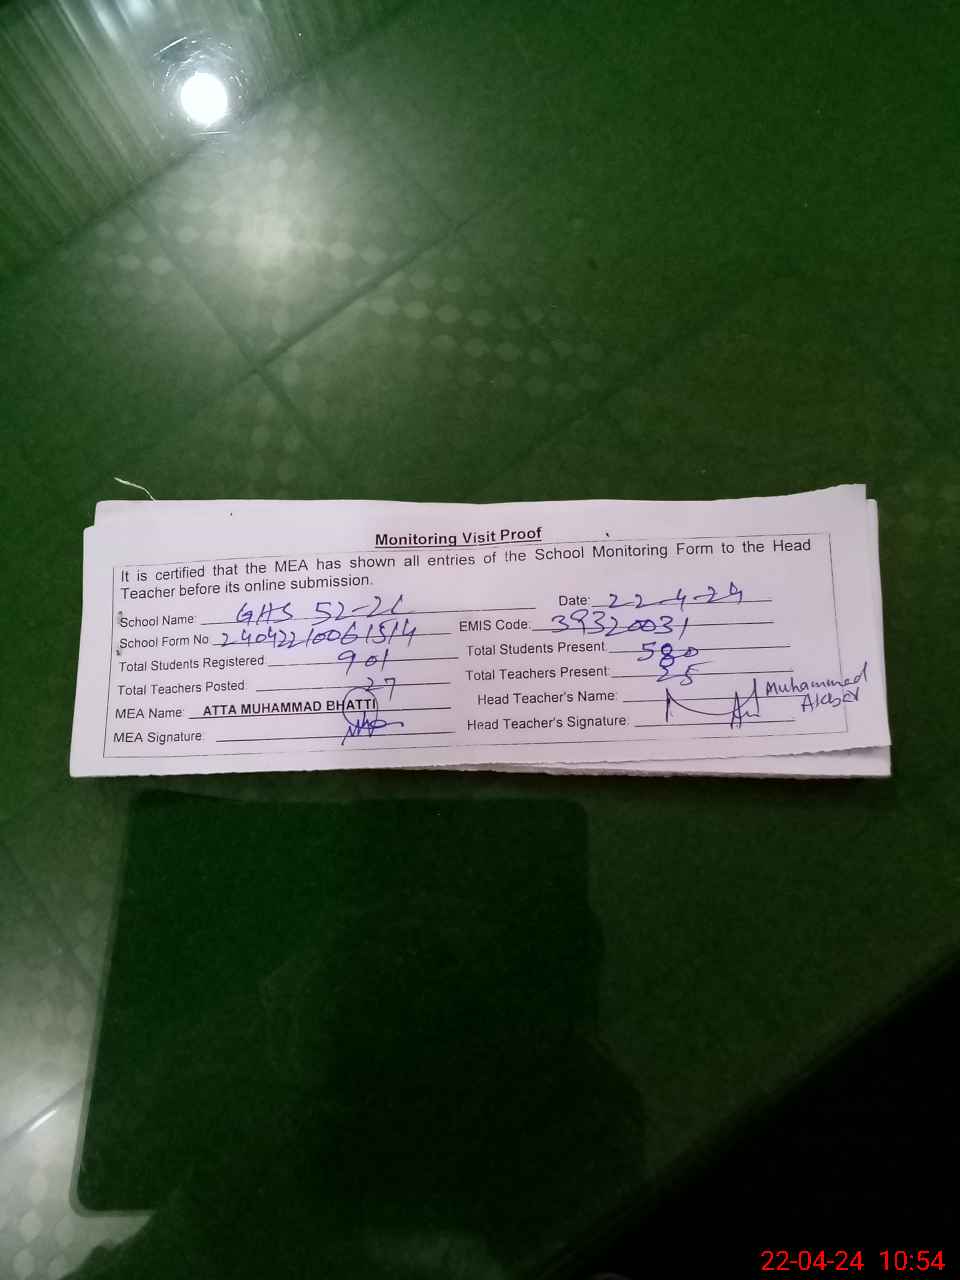 Monitoring Visit Proof
It is certified that the MEA has shown all entries of the School Monitoring Form to the Head
Teacher before its online submission.
School Name: GHS 52-2L Date: 22-4-24
School Form No: 24042210061514 EMIS Code: 39320031
Total Students Registered: 901 Total Students Present: 580
Total Teachers Posted: 27 Total Teachers Present: 25
MEA Name: ATTA MUHAMMAD BHATTI Head Teacher's Name: Muhammad
MEA Signature: Head Teacher's Signature:
22-04-24 10:54